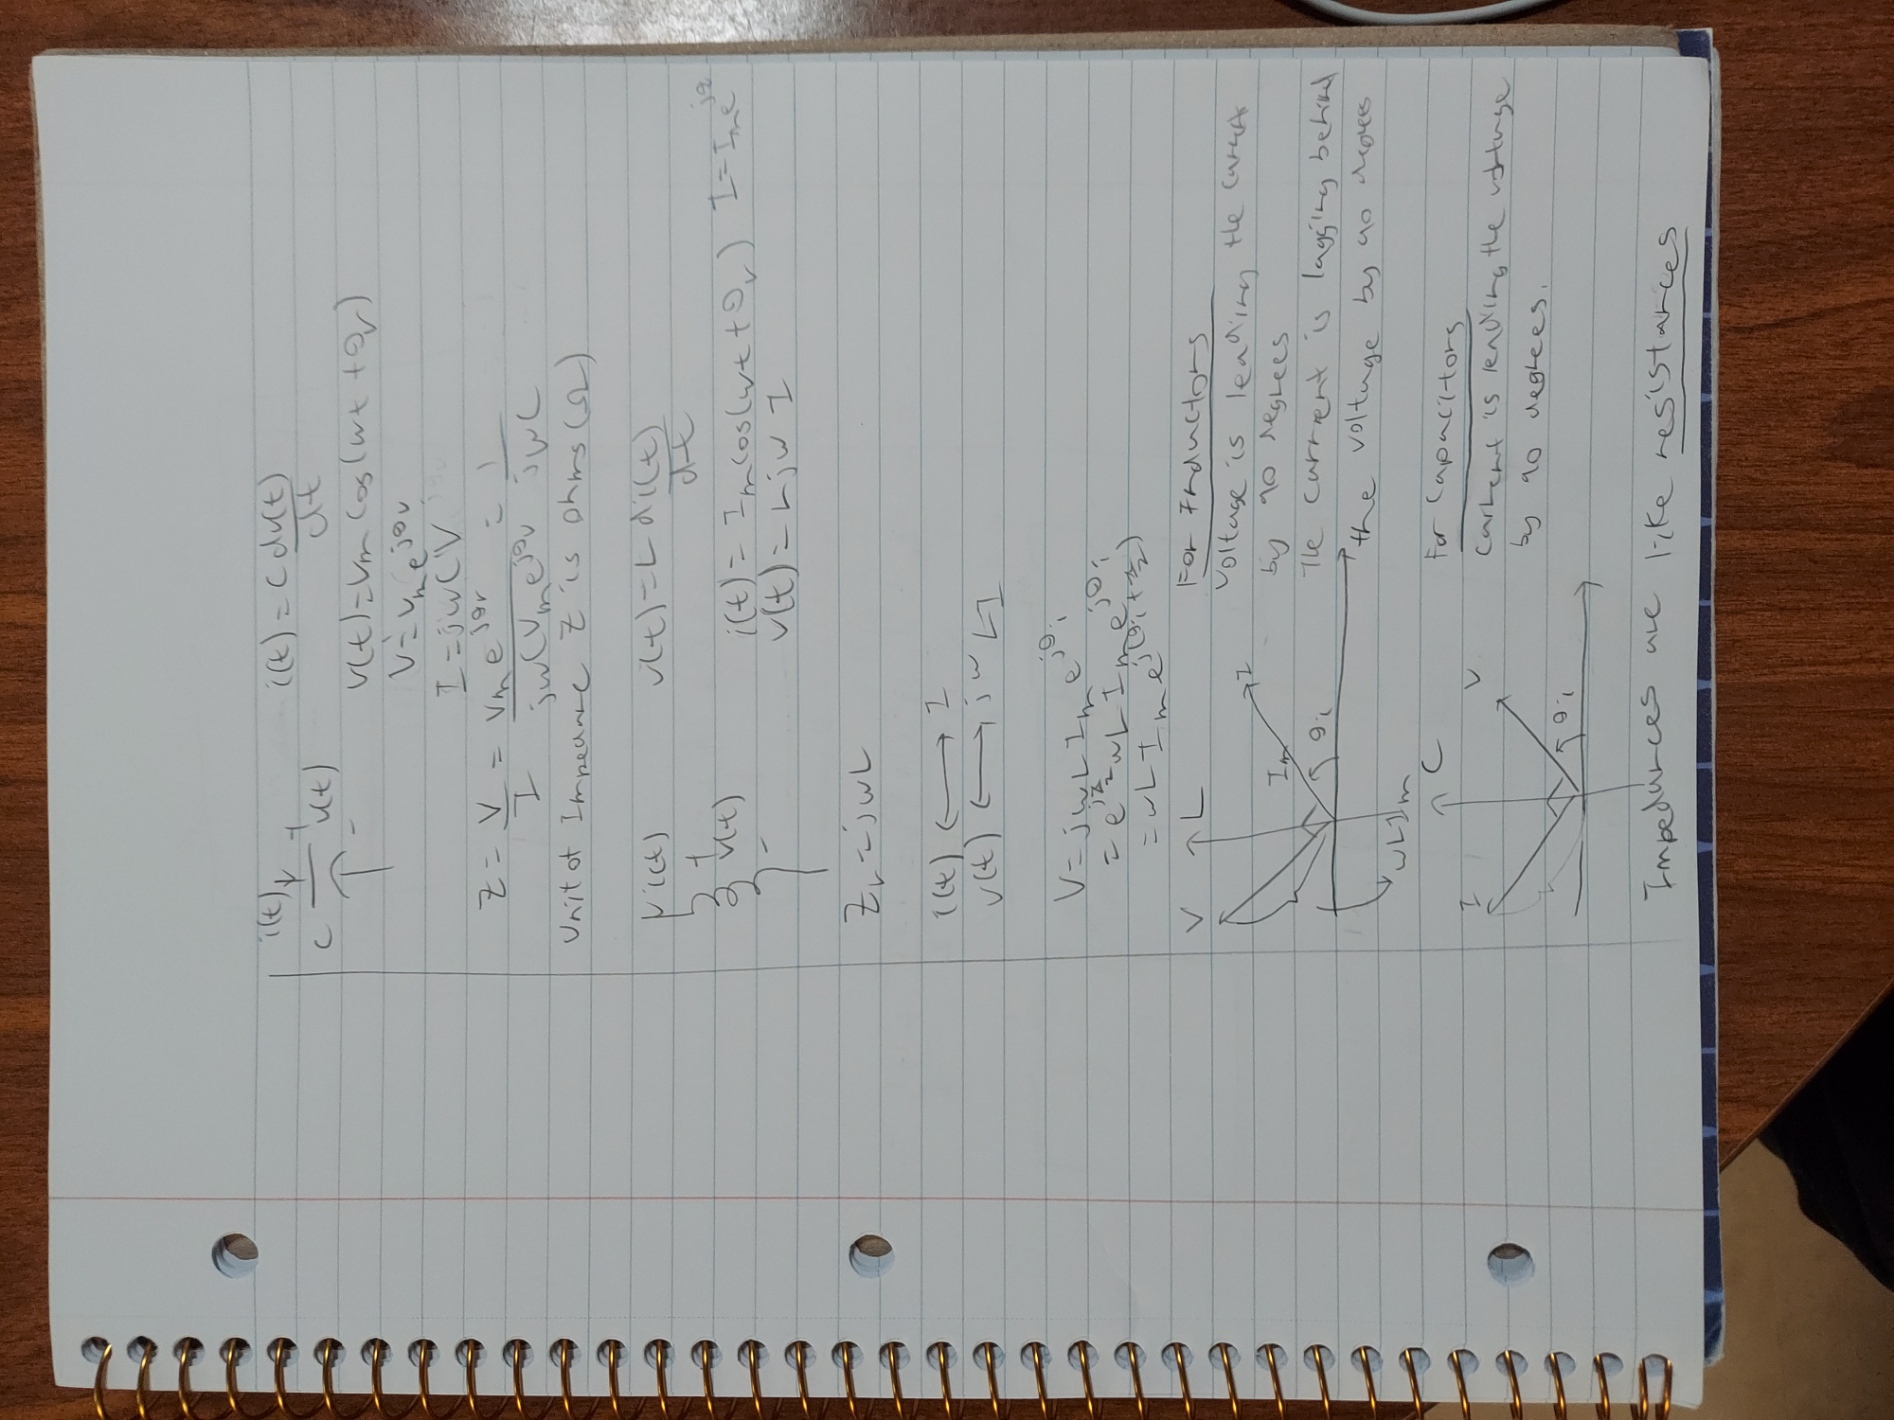 i(t) + i(t) = C dv(t)/dt
C v(t)
- v(t) = Vm cos(wt + θv)
V = Vm e^jθv
I = jwCV
Z = V/I = Vm e^jθv / jwC Vm e^jθv = 1/jwC
Unit of Impedance Z is ohms (Ω)
i(t) v(t) = L di(t)/dt
+
v(t) i(t) = Im cos(wt + θv) I = Im e^jθ
- v(t) = Ljw I
ZL = jwL
i(t) ⟷ I
v(t) ⟷ jw LI
V = jwL Im e^jθi
= e^jπ/2 wL Im e^jθi
= wL Im e^j(θi + π/2)
V L For Inductors
Voltage is leading the current
I by 90 degrees
Im The current is lagging behind
θi the voltage by 90 degrees
wLIm
C For Capacitors
I V Current is leading the voltage
by 90 degrees.
θi
Impedances are like resistances